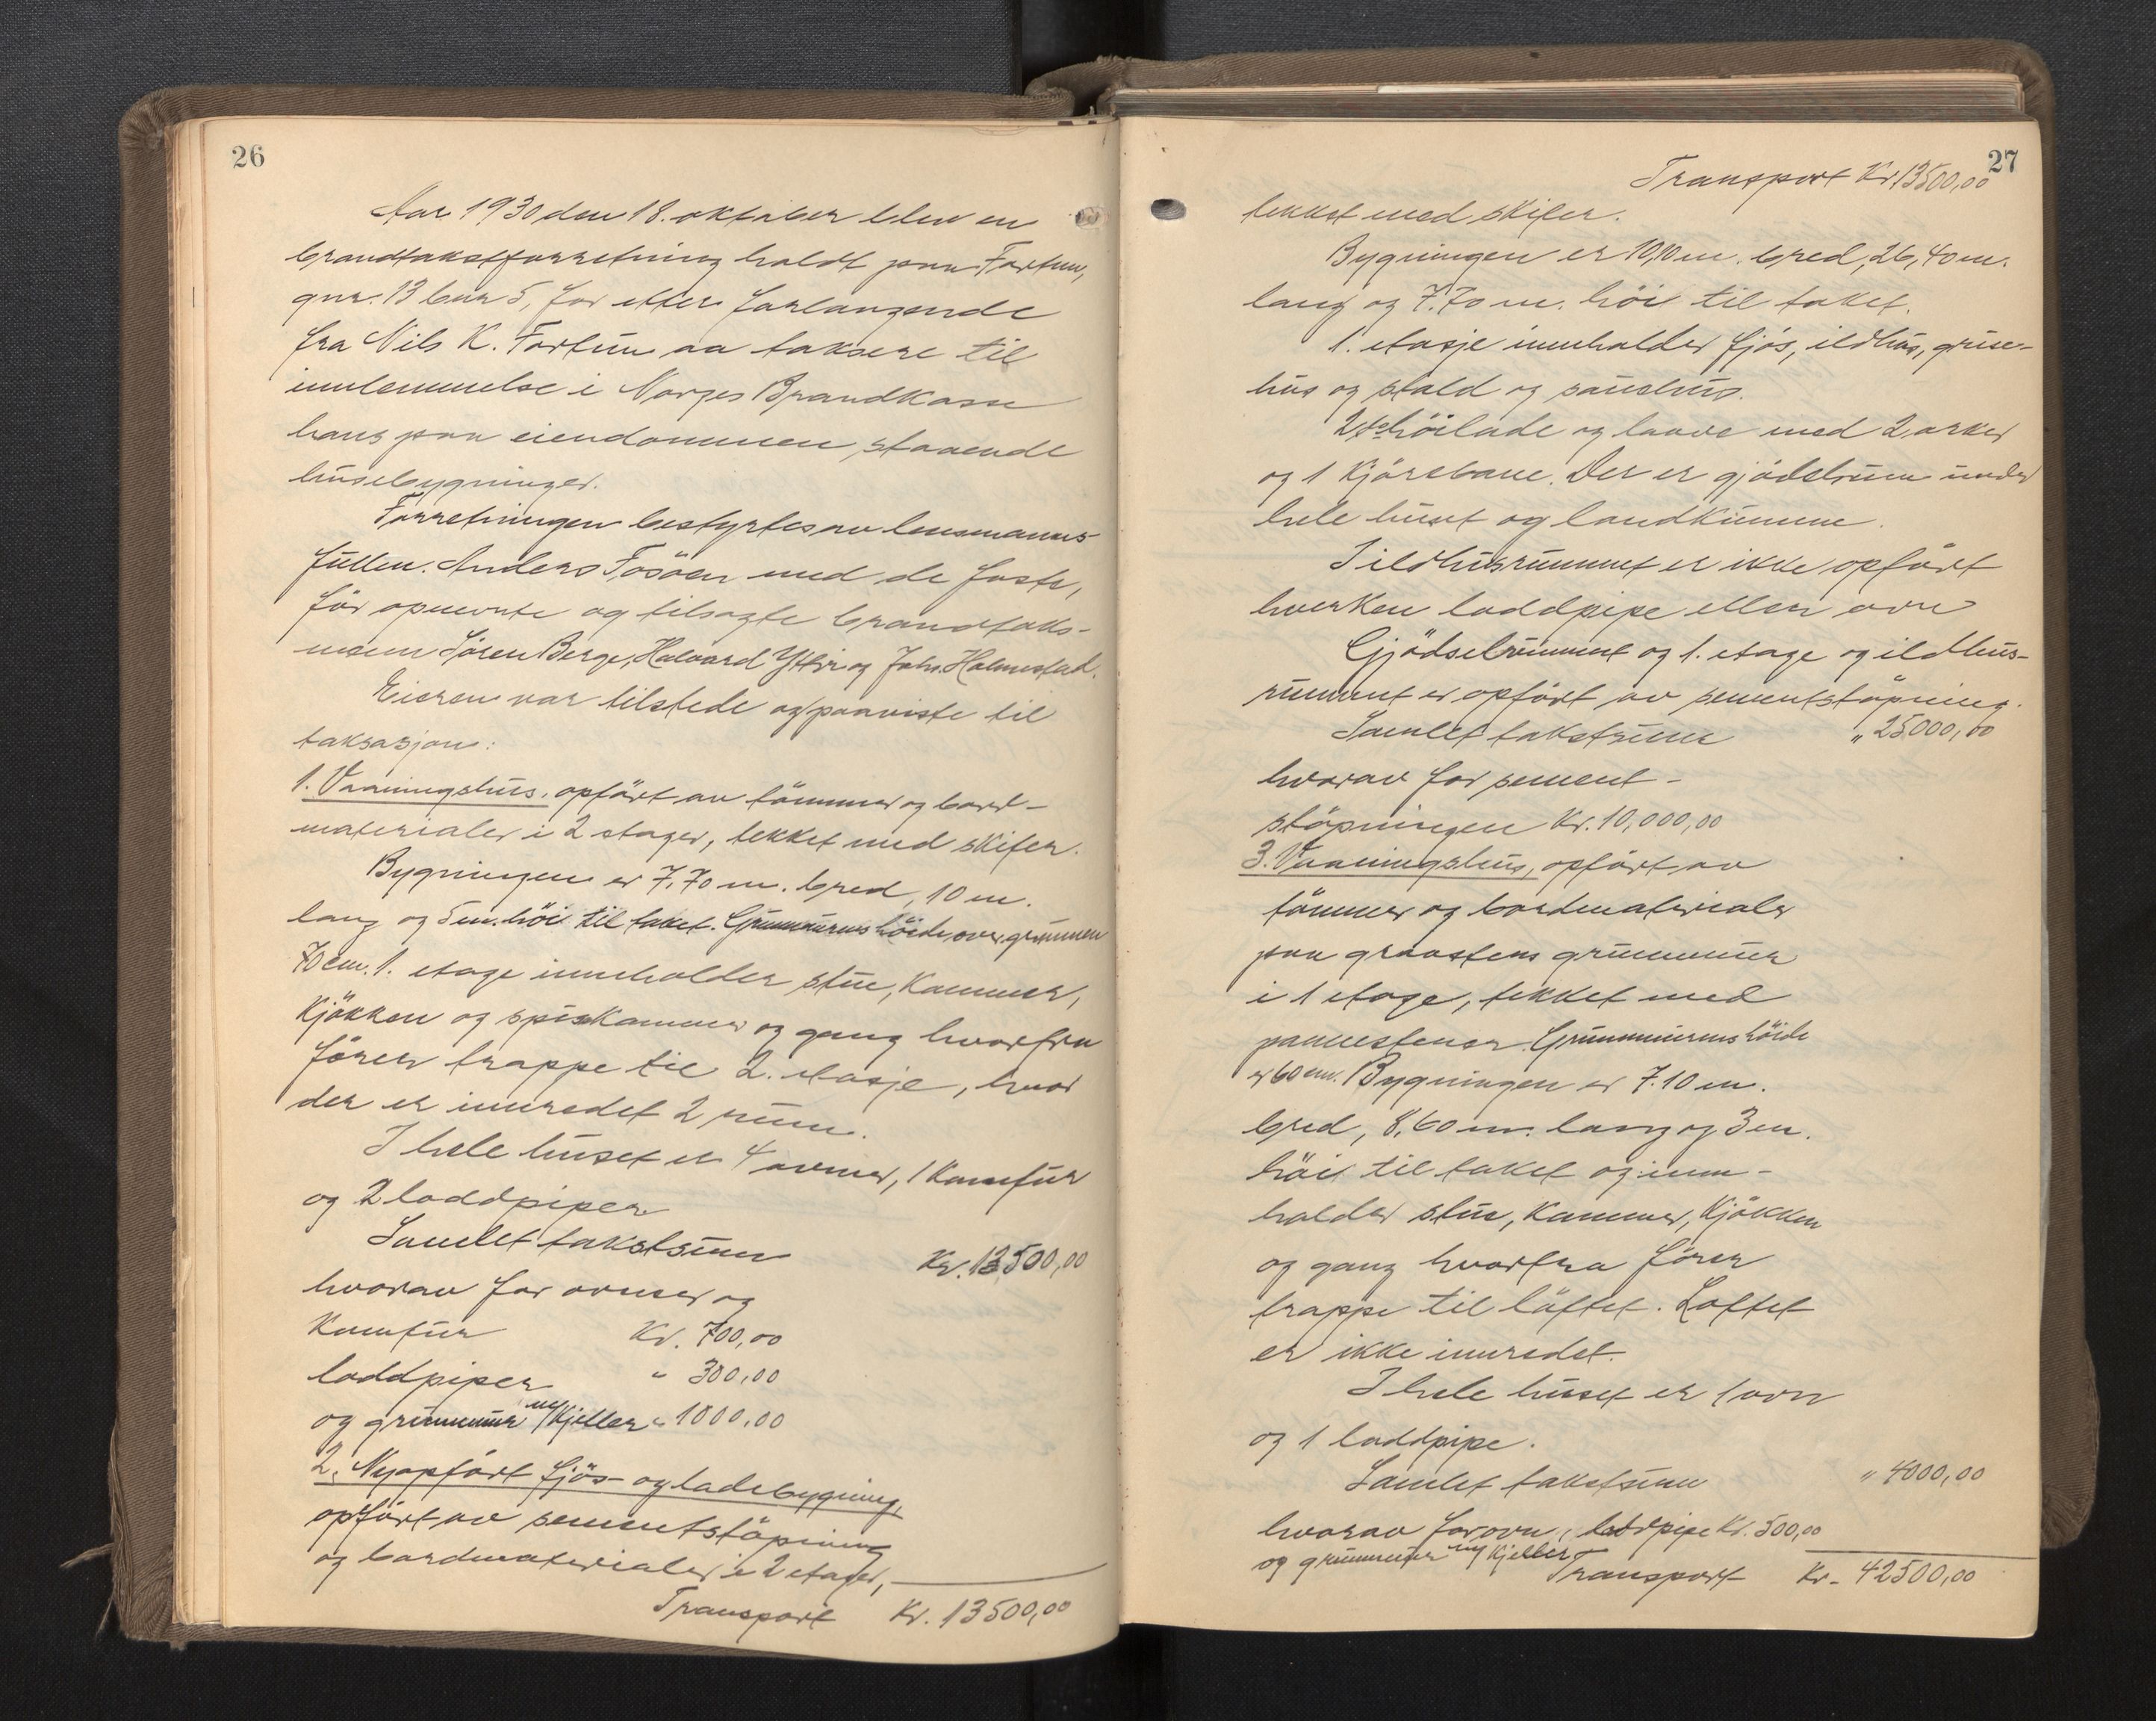 26
Aar 1930 den 18. oktober blev en
brandtakstforretning holdt paa Fortun,
gnr. 13 bnr 5, for efter forlangende
fra Nils K. Fortun aa taksere til
innlemmelse i Norges Brandkasse
hans paa eiendommen staaende
husebygninger.
Forretningen bestyrtes av lensmanns-
fullm. Anders Fösöen med de faste,
för opnevnte og tilsagte brandtaks-
menn Sören Berge, Halvard Yttri og Joh. Holmstad.
Eieren var tilstede og paaviste til
taksasjon:
1. Vaaningshus, opfört av tömmer og bord-
materialer i 2 etager, tekket med skifer.
Bygningen er 7,70 m. bred, 10 m.
lang og 5 m. höi til taket. Grunnmurens höide over grunnen
70 cm. 1. etage inneholder stue, kammer,
kjökken og spiskammer og gang hvorfra
förer trappe til 2. etasje, hvor
der er innredet 2 rum.
I hele huset er 4 ovner, 1 komfur
og 2 loddpiper
Samlet takstsum Kr. 13500,00
hvorav for ovner og
komfur Kr. 700,00
loddpiper " 300,00
og grunnmur m/kjeller " 1000,00
2. Nyopfört fjös- og ladebygning,
opfört av sementstöpning
og bordmaterialer i 2 etager,
Transport Kr. 13500,00
27
Transport Kr. 13500,00
tekket med skifer.
Bygningen er 10,10 m. bred, 26,40 m.
lang og 7.70 m. höi til taket.
1. etasje inneholder fjös, ildhus, grise-
hus og stald og sauehus.
2 höilade og laave med 2 arker
og 1 kjörebane. Der er gjödselrum under
hele huset og landkumme.
I ildhusrummet er ikke opfört
hverken loddpipe eller ovn
Gjödselrummet og 1. etage og ildhus-
rummet er opfört av sementstöpning.
Samlet takstsum " 25000,00
hvorav for sement-
stöpningen Kr. 10,000,00
3. Vaaningshus, opfört av
tömmer og bordmaterialer
paa graastens grunnmur
i 1 etage, tekket med
pannestener. Grunnmurens höide
er 60 cm. Bygningen er 7.10 m.
bred, 8,60 m. lang og 3 m.
höi til taket og inne-
holder stue, kammer, kjökken
og gang hvorfra förer
trappe til löftet. Loftet
er ikke innredet.
I hele huset er 1 ovn
og 1 loddpipe.
Samlet takstsum " 4000,00
hvorav for ovn, loddpipe Kr. 500,00
og grunnmur m/ kjeller
Transport Kr. 42500,00